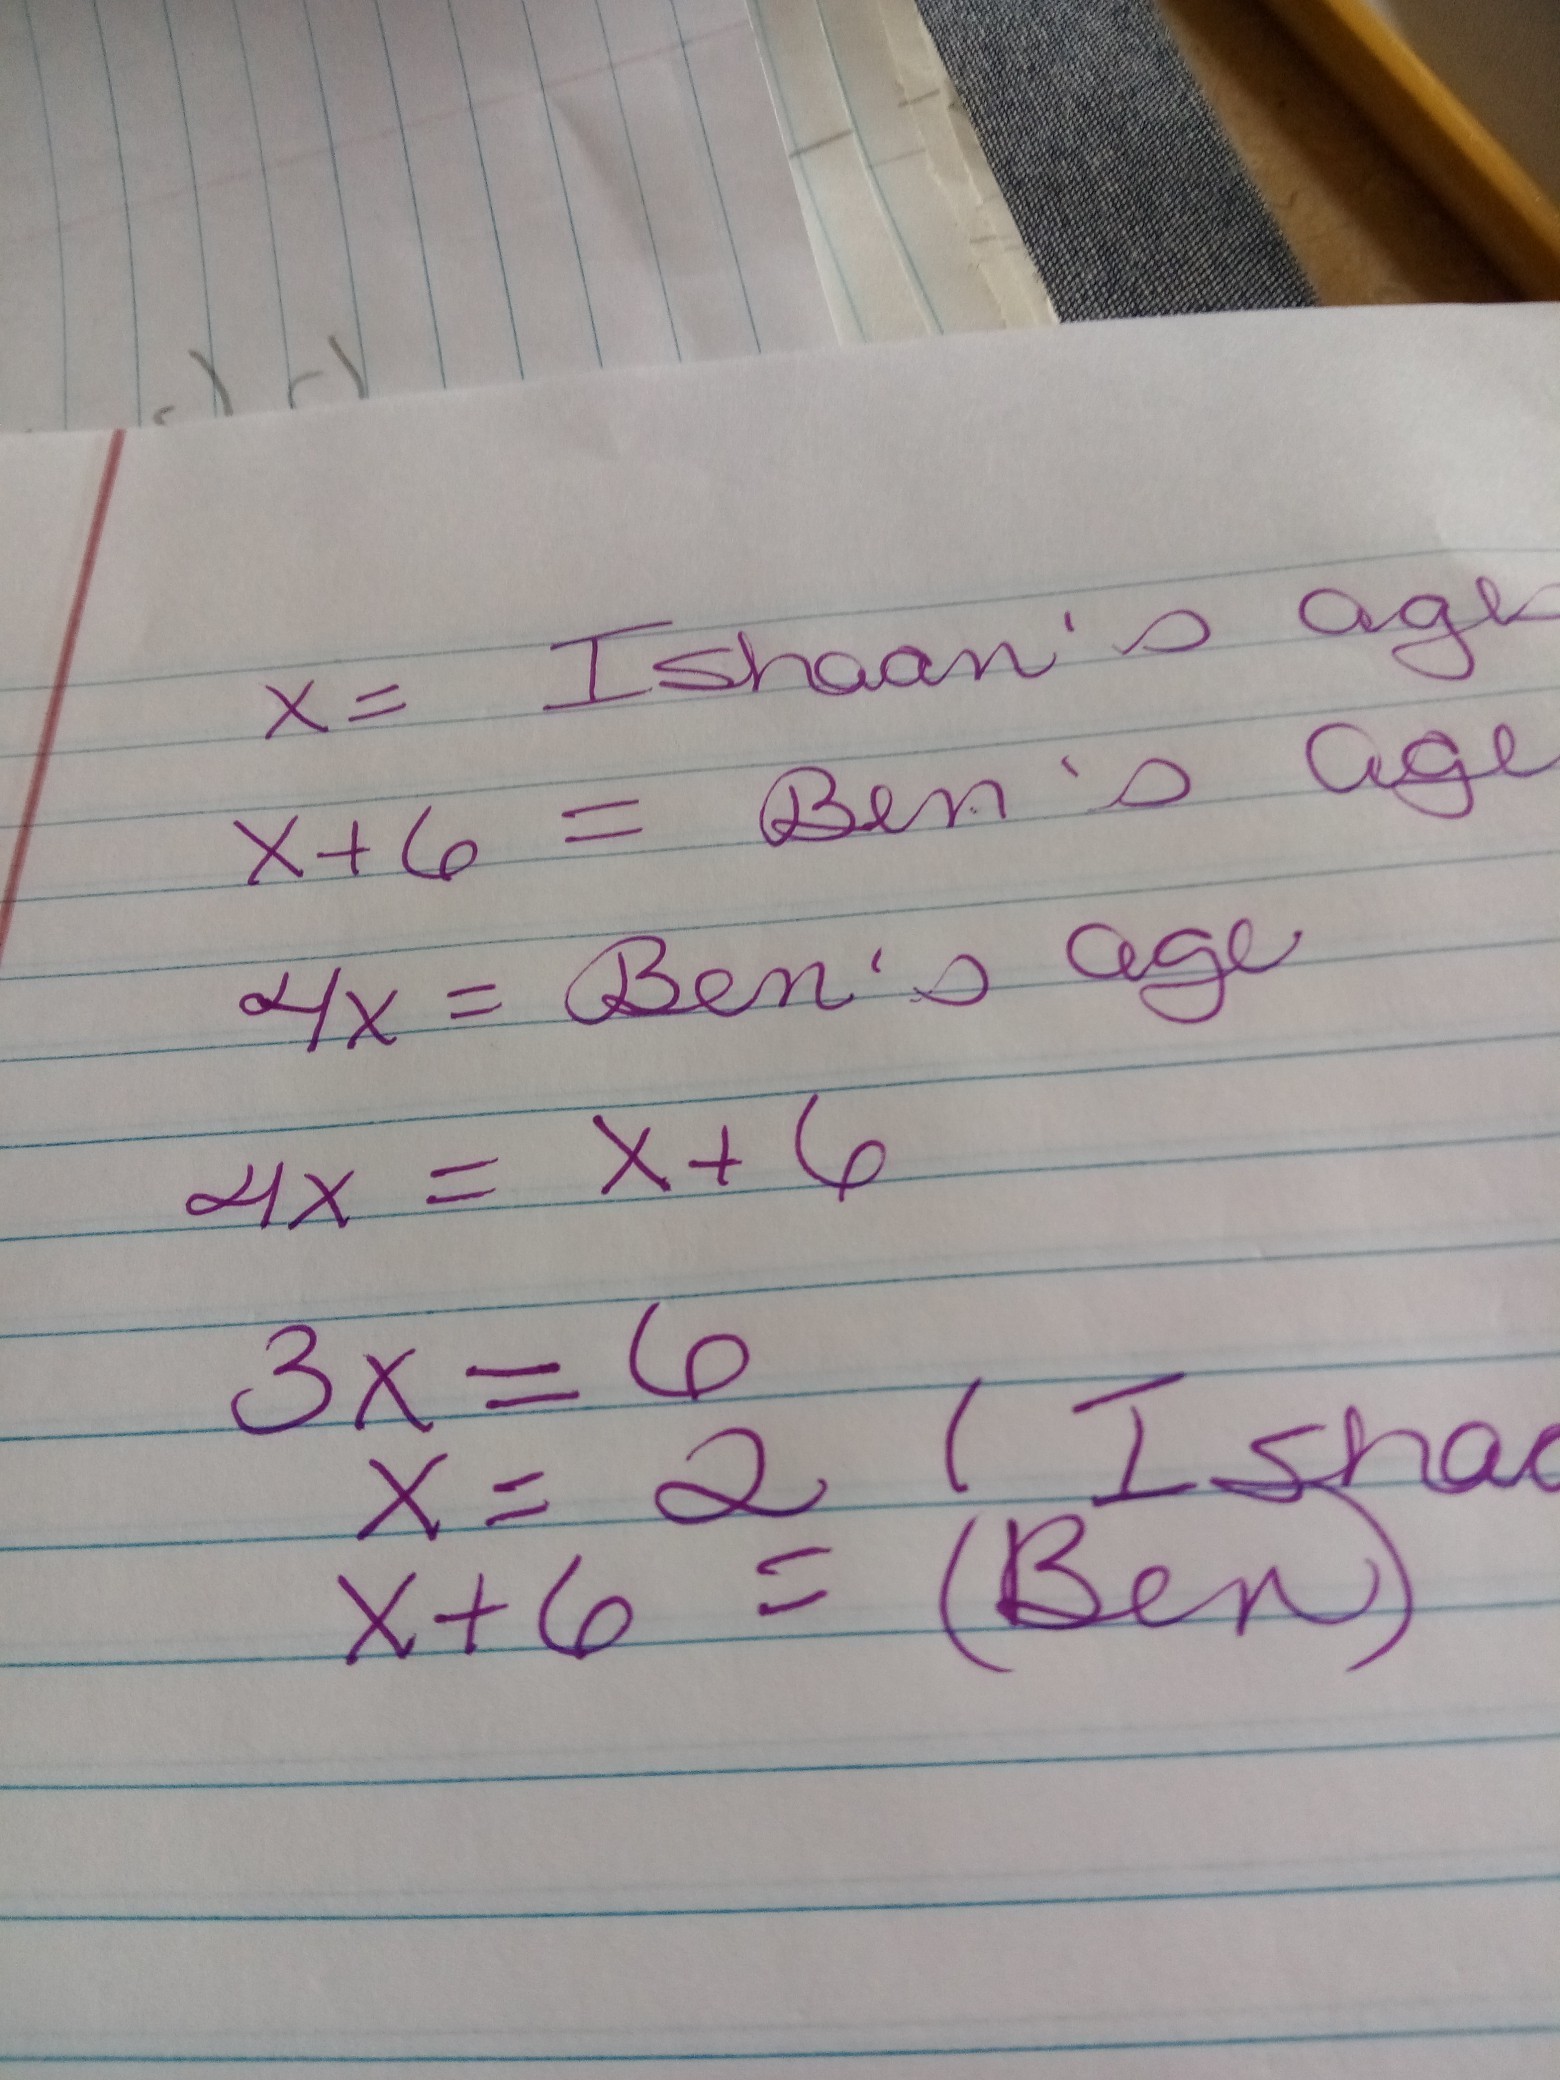 x = Ishaan's age
x+6 = Ben's age
4x = Ben's age
4x = x+6
3x = 6
x = 2 ( Ishaa
x+6 = (Ben)